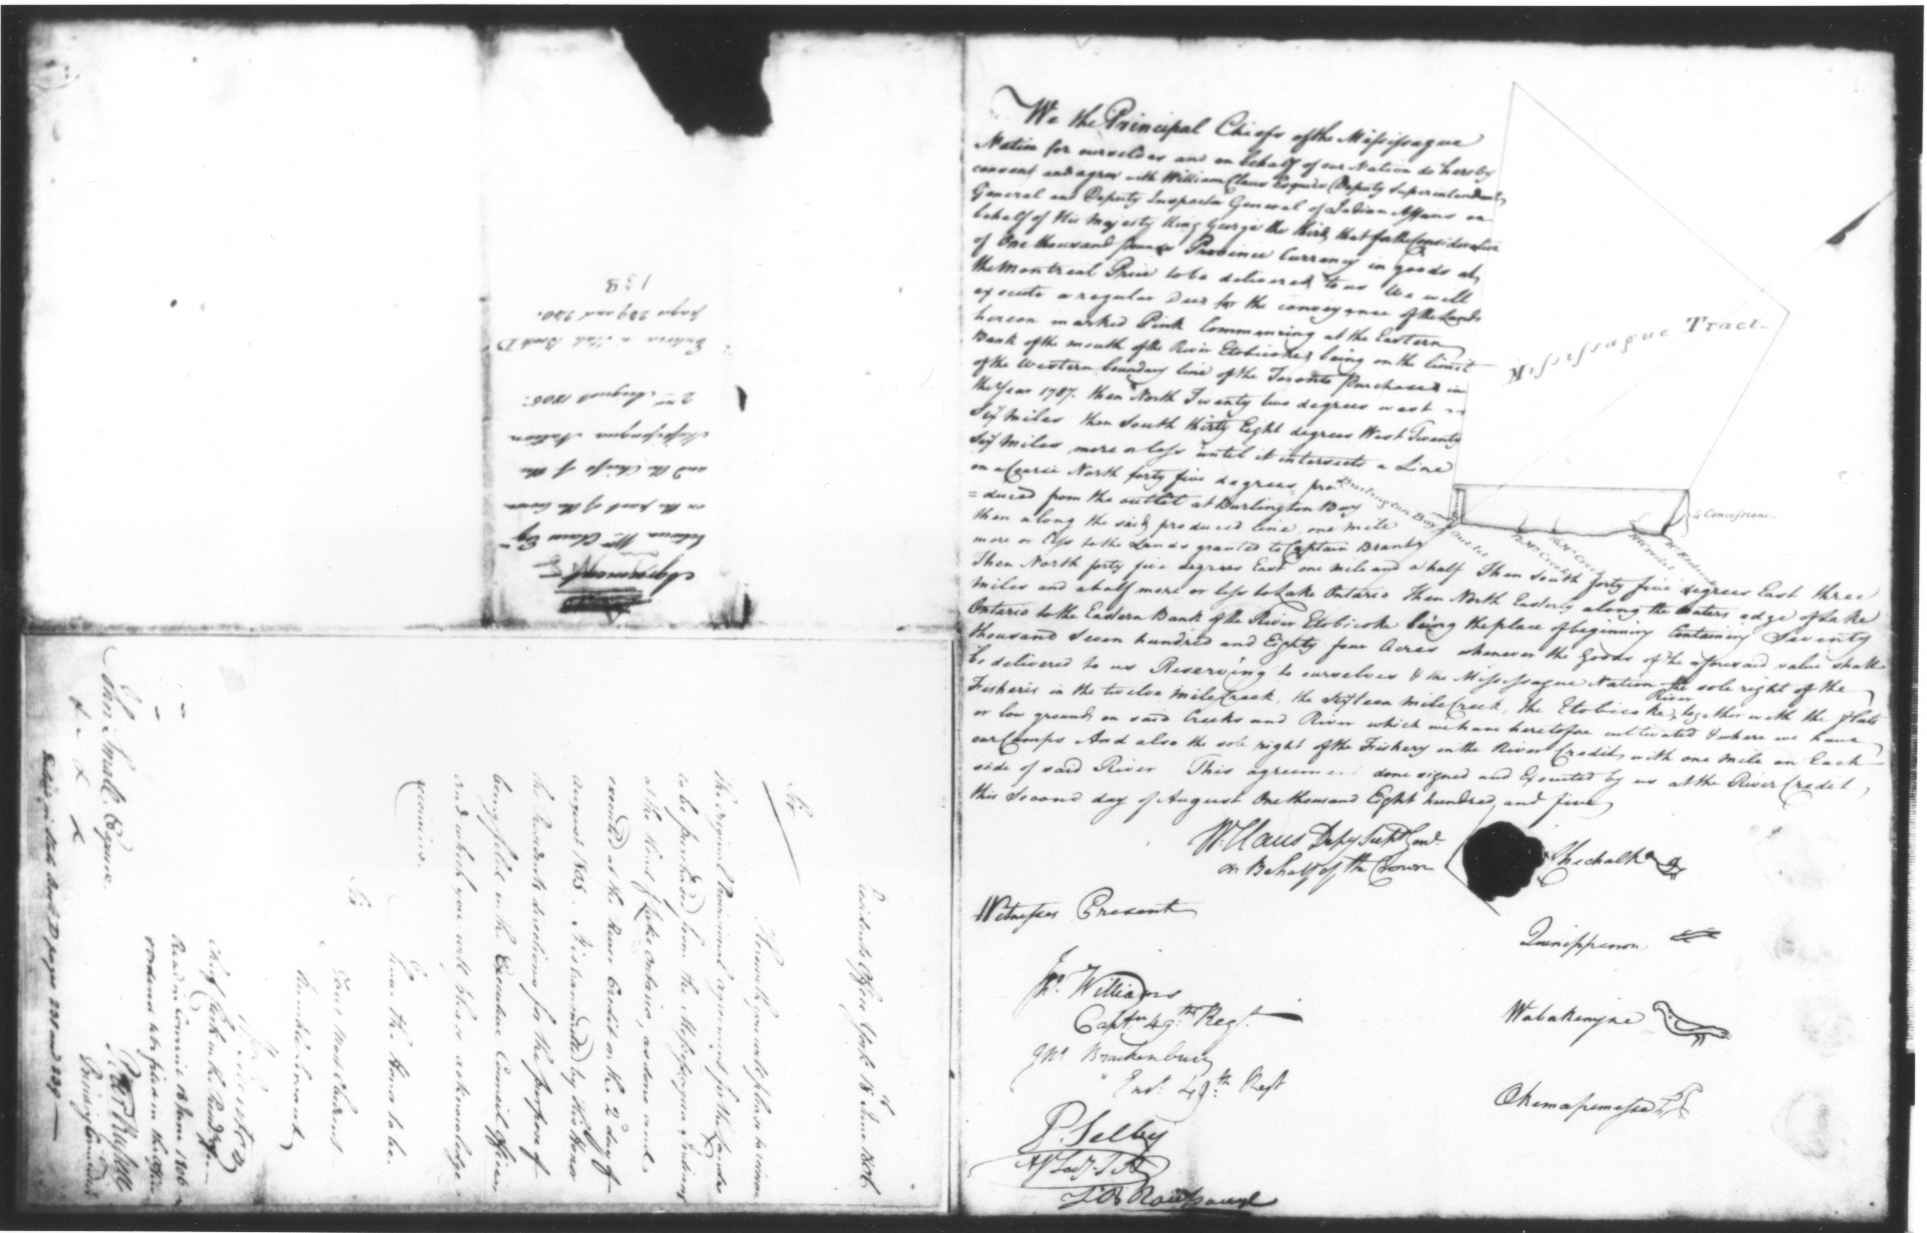 We the Principal Chiefs of the Mississague
Nation for ourselves and on behalf of our Nation do hereby
consent and agree with William Claus Esquire Deputy Superintendent
General and Deputy Inspector General of Indian Affairs on
behalf of His Majesty King George the third, that for the Consideration
of One thousand pounds Province Currency in goods at
the Montreal Price to be delivered to us We will
execute a regular Deed for the conveyance of the Lands
hereon marked Pink Commencing at the Eastern
Bank of the mouth of the River Etobicoke, being on the limit
of the Western boundary line of the Toronto Purchase in
the Year 1787. then North Twenty two degrees west
Six miles then South thirty Eight degrees West Twenty
Six miles more or less until it intersects a Line
on a Course North forty five degrees pro
=duced from the outlet at Burlington Bay
then along the said produced line one mile
more or less to the Lands granted to Captain Brant
Then North forty five degrees East one mile and a half Then South forty five degrees East three
miles and a half more or less to Lake Ontario Then North Easterly along the waters edge of Lake
Ontario to the Eastern Bank of the River Etobicoke being the place of beginning Containing Seventy
thousand Seven hundred and Eighty four Acres whenever the Goods of the aforesaid value shall
be delivered to us Reserving to ourselves & the Mississague Nation the sole right of the
Fisheries in the twelve mile Creek, the Sixteen mile Creek, the Etobicoke River, together with the flats
or low grounds on said Creeks and River which we have heretofore cultivated & where we have
our Camps And also the sole right of the Fishery in the River Credit, with one mile on Each
side of said River This agreement done signed and Executed by us at the River Credit,
this Second day of August One thousand Eight hundred, and five
Mississague Tract.
Burlington Bay
Outlet
Concessions
R. Credit
W Claus Depy Supt Genl.
on Behalf of the Crown
Chechalk
Quinippenon
Wabakenyne
Okemapenesse
Witnesses Present
Jno. Williams
Captn 49th Regt.
Jno. Brackenbury
Ens. 49th Regt
P. Selby
J. B. Rousseaux
Agreement
between Wm. Claus Esqr.
on the part of the Crown
and the Chiefs of the
Mississague Nation
2nd August 1805.
Entered in Lib. Book D
pages 229 and 230.
Presidents Office York 18 June 1806.
Sir
Herewith you will please to receive
the original Provisional agreement for the Lands
to be purchased from the Mississague Indians
at the Head of Lake Ontario, as done and
executed at the River Credit on the 2d day of
August 1805. It is transmitted by His Honor
the Presidents directions for the purpose of
being filed in the Executive Council Office
and which you will please acknowledge
receiving.
I have the Honor to be
Sir
Your most Obedient
Humble Servant
John Small Esquire
&c &c &c
Read in Council
1806
ordered to be filed in the office
Peter Russell
Presiding Councillor
Entered in Lib. Book D pages